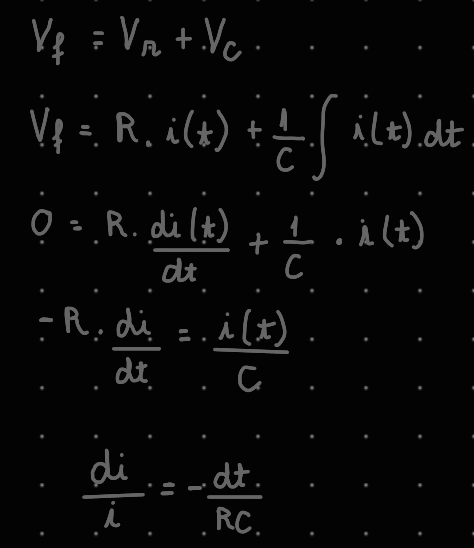 V_f = V_R + V_C
V_f = R . i(t) + 1/C ∫ i(t) . dt
0 = R . di(t)/dt + 1/C . i(t)
-R . di/dt = i(t)/C
di/i = - dt/RC